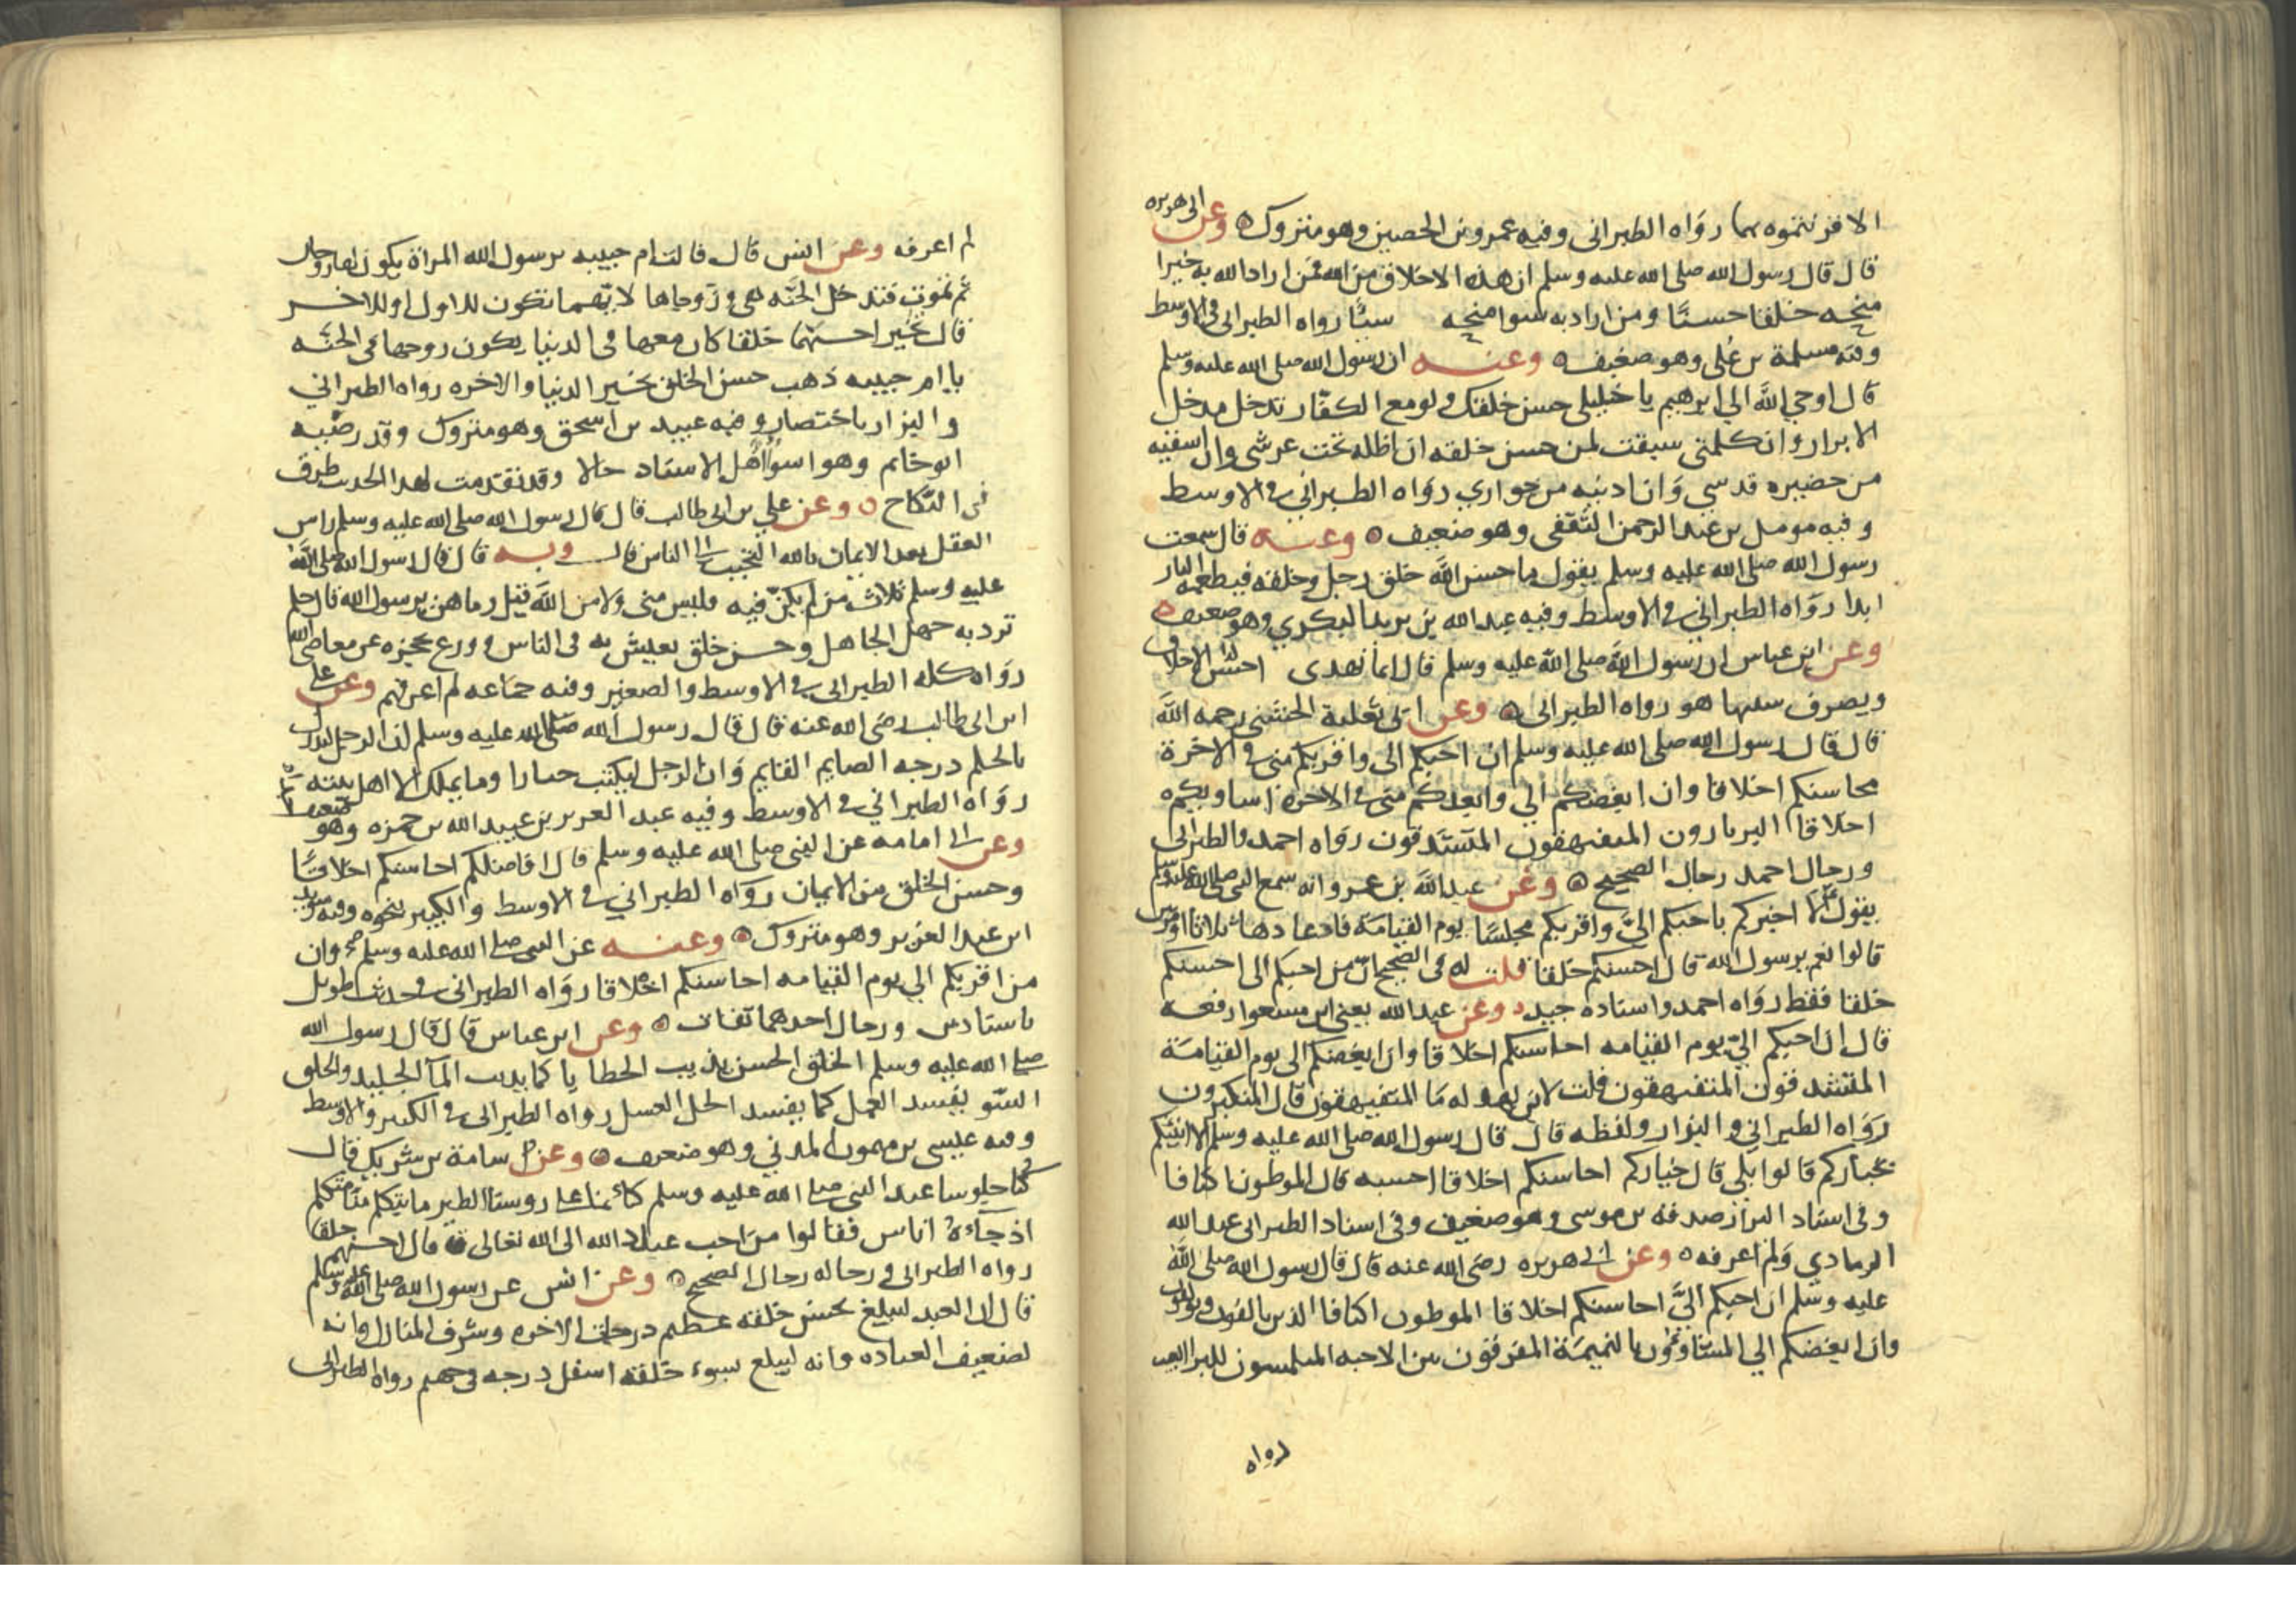 الا فزينتموه بهما رواه الطبرانى وفيه عمرو بن الحصين وهو متروك وعن ابى هريره
قال قال رسول الله صلى الله عليه وسلم ان هذه الاخلاق من الله فمن اراد الله به خيرا
منحه خلقا حسنا ومن اراد به سوا منحه سيئا رواه الطبرانى فى الاوسط
وفيه مسلمة بن على وهو ضعيف وعنه ان رسول الله صلى الله عليه وسلم
قال اوحي الله الي ابرهيم يا خليلى حسن خلقك ولو مع الكفار تدخل مدخل
الابرار وان كلمتى سبقت لمن حسن خلقه ان اظله تحت عرشى وان اسقيه
من حضيره قدسي وان ادنيه من جواري رواه الطبراني فى الاوسط
وفيه مومل بن عبد الرحمن الثقفى وهو ضعيف وعنه قال سمعت
رسول الله صلى الله عليه وسلم يقول ما حسن الله خلق رجل وخلقه فيطعمه النار
ابدا رواه الطبراني فى الاوسط وفيه عبد الله بن يزيد البكري وهو ضعيف
وعن ابن عباس ان رسول الله صلى الله عليه وسلم قال انما تهدى احسن الاخلاق
ويصرف سيها هو رواه الطبرانى وعن ابى ثعلبة الخشنى رحمه الله
قال قال رسول الله صلى الله عليه وسلم ان احبكم الى واقربكم منى فى الاخرة
محاسنكم اخلاقا وان ابغضكم الي وابعدكم منى فى الاخرة اساويكم
اخلاقا الثرثارون المتفيهقون المتشدقون رواه احمد والطبرانى
ورجال احمد رجال الصحيح وعن عبد الله بن عمرو انه سمع النبى صلى الله عليه وسلم
يقول الا اخبركم باحبكم الي واقربكم مجلسا يوم القيامة فاعادها ثلاثا او مرتين
قالوا نعم يرسول الله قال احسنكم خلقا قلت له فى الصحيح ان من احبكم الى احسنكم
خلقا فقط رواه احمد واسناده جيد وعن عبد الله يعنى ابن مسعود رفعه
قال ان احبكم الي يوم القيامه احاسنكم اخلاقا وان ابغضكم الى يوم القيامة
المتشدقون المتفيهقون قلت لابن لهدله ما المتفيهقون قال المتكبرون
رواه الطبراني والبزار ولفظه قال قال رسول الله صلى الله عليه وسلم الا انبئكم
بخياركم قالوا بلى قال خياركم احاسنكم اخلاقا احسبه قال الموطون اكنافا
وفى اسناد البزار صدقه بن موسى وهو ضعيف وفى اسناد الطبرانى عبد الله
الرمادي ولم اعرفه وعن ابى هريره رضى الله عنه قال قال رسول الله صلى الله
عليه وسلم ان احبكم الي احاسنكم اخلاقا الموطون اكنافا الذين يالفون ويولفون
وان ابغضكم الي المشاوون بالنميمة المفرقون بين الاحبه الملتمسون للبرا العيب
رواه
لم اعرفه وعن انس قال قالت ام حبيبه يرسول الله المراة يكون لها زوجان
ثم تموت فتدخل الجنه هى وزوجاها لايهما تكون للاول او للاخر
قال تخير احسنهما خلقا كان معها فى الدنيا يكون زوجها فى الجنه
يا ام حبيبه ذهب حسن الخلق بخير الدنيا والاخره رواه الطبراني
والبزار باختصار وفيه عبيد بن اسحق وهو متروك وقد رضيه
ابو حاتم وهو اسوا اهل الاسناد حالا وقد تقدمت لهذا الحديث طرق
فى النكاح وعن علي بن ابى طالب قال قال رسول الله صلى الله عليه وسلم راس
العقل بعد الايمان بالله التحبب الى الناس قال وبه قال قال رسول الله صلى الله
عليه وسلم ثلاث من لم يكن فيه فليس منى ولا من الله قيل وما هن يرسول الله قال حلم
ترد به جهل الجاهل وحسن خلق يعيش به فى الناس وورع يحجزه عن معاصى الله
رواه كله الطبرانى فى الاوسط والصغير وفيه جماعه لم اعرفهم وعن على
ابن ابى طالب رضى الله عنه قال قال رسول الله صلى الله عليه وسلم ان الرجل ليدرك
بالحلم درجه الصايم القايم وان الرجل ليكتب جبارا وما يملك الا اهل بيته
رواه الطبراني فى الاوسط وفيه عبد العزيز بن عبيد الله بن حمزه وهو ضعيف
وعن ابى امامه عن النبى صلى الله عليه وسلم قال افاضلكم احاسنكم اخلاقا
وحسن الخلق من الايمان رواه الطبراني فى الاوسط والكبير بنحوه وفيه سويد
ابن عبد العزيز وهو متروك وعنه عن النبى صلى الله عليه وسلم وان
من اقربكم الي يوم القيامه احاسنكم اخلاقا رواه الطبرانى فى حديث طويل
باسنادين ورجال احدهما ثقات وعن ابن عباس قال قال رسول الله
صلى الله عليه وسلم الخلق الحسن يذيب الخطايا كما يذيب الما الجليد والخلق
السو يفسد العمل كما يفسد الخل العسل رواه الطبرانى فى الكبير والاوسط
وفيه عيسى بن ميمون المدني وهو ضعيف وعن اسامة بن شريك قال
كنا جلوسا عند النبى صلى الله عليه وسلم كانما على روسنا الطير ما يتكلم منا متكلم
اذ جآءه اناس فقالوا من احب عباد الله الى الله تعالى قال احسنهم خلقا
رواه الطبرانى ورجاله رجال الصحيح وعن انس عن رسول الله صلى الله عليه وسلم
قال ان العبد ليبلغ بحسن خلقه عظيم درجات الاخره وشرف المنازل وانه
لضعيف العباده وانه ليبلغ بسوء خلقه اسفل درجه فى جهنم رواه الطبرانى